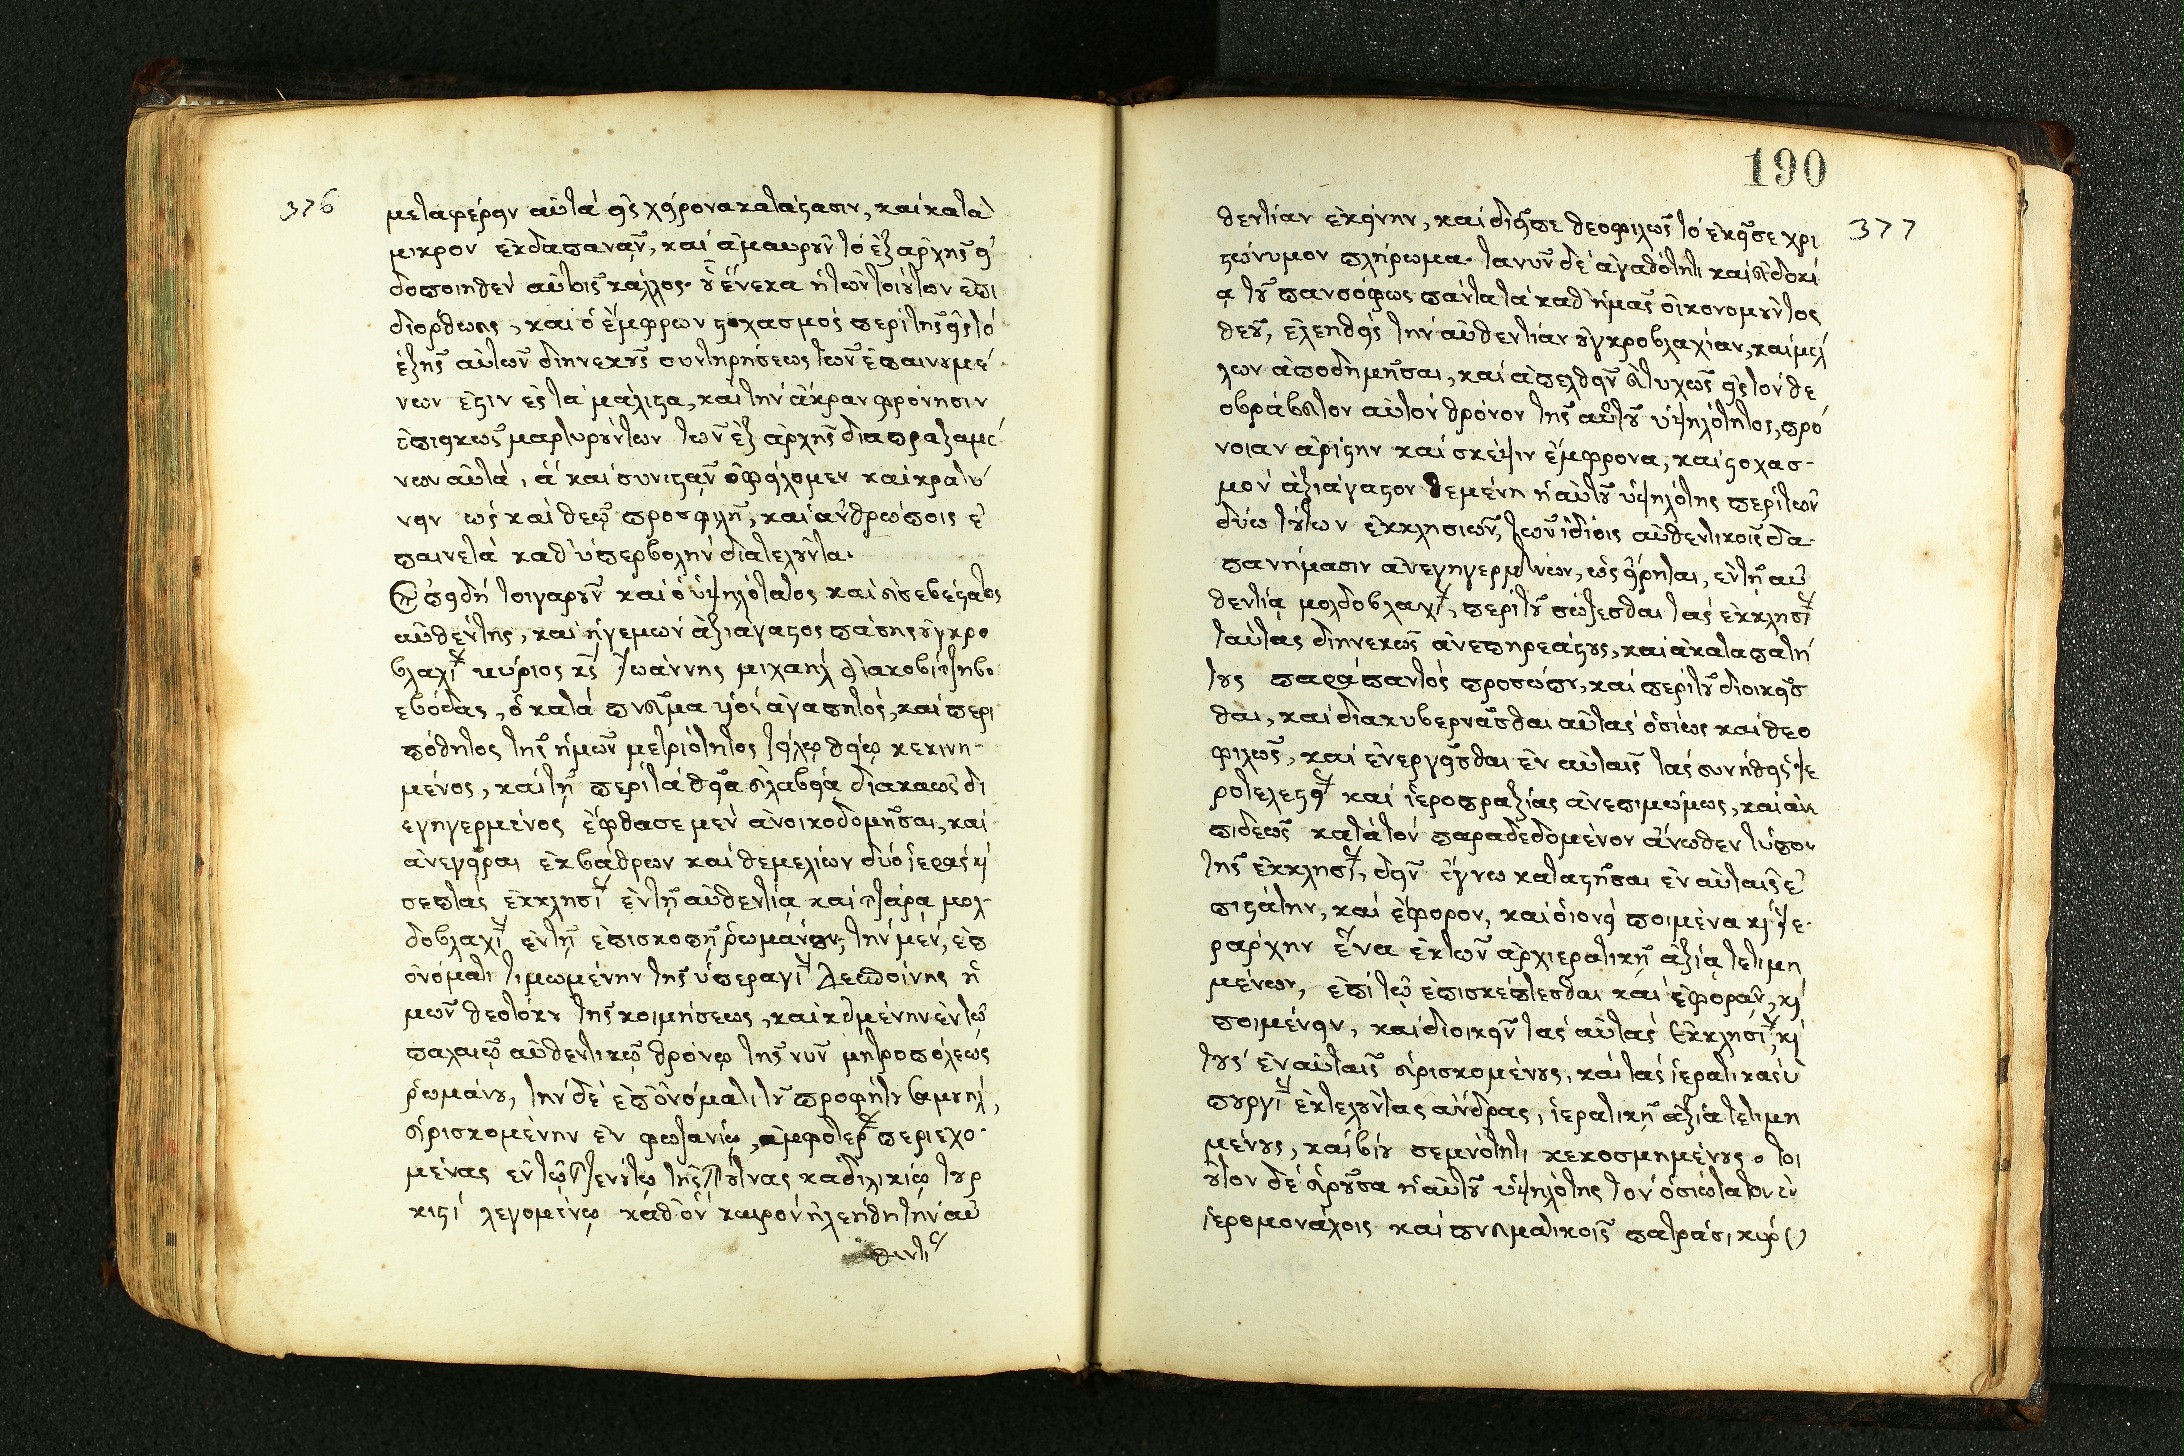 376
μεταφέρειν αὐτά εἰς χείρονα κατάστασιν, καί κατά
μικρόν ἐκδαπανᾷν, καί ἀμαυροῦν τό ἐξαρχῆς εἰ
δοποιηθέν αὐτοῖς κάλλος· οὗ ἕνεκα ἡ τῶν τοιούτων ἐπι
διόρθωσις, καί ὁ ἐμφρων στοχασμός περί τῆς εἰς τό
ἑξῆς αὐτῶν διηνεκοῦς συντηρήσεως τῶν ἐπαινουμέ
νων ἐστίν ἐς τά μάλιστα, καί τήν ἄκραν φρόνησιν
ἐπιεικῶς μαρτυρούντων τῶν ἐξ ἀρχῆς διαπραξαμέ
νων αὐτά, ἅ καί συνιστᾷν ὀφείλομεν καί κρατύ
νειν ὡς καί θεῷ προσφιλῆ, καί ἀνθρώποις ἐ
παινετά καθ' ὑπερβολήν διατελοῦντα.
Ἐπειδή τοιγαροῦν καί ὁ ὑψηλότατος καί εὐσεβέστατος
αὐθέντης, καί ἡγεμών ἀξιάγαστος πάσης οὐγκρο
βλαχίας κύριος κς Ἰωάννης μιχαήλ ῥακοβίτζη βο
εβόδας, ὁ κατά πνεῦμα υἱός ἀγαπητός, καί περι
πόθητος τῆς ἡμῶν μετριότητος ζήλῳ θείῳ κεκινη
μένος, καί τῇ περί τά θεῖα εὐλαβείᾳ διακαῶς δι
εγηγερμένος ἔφθασε μέν ἀνοικοδομῆσαι, καί
ἀνεγεῖραι ἐκ βάθρων καί θεμελίων δύο ἱεράς κ
σεπτάς ἐκκλησίας ἐν τῇ αὐθεντίᾳ καί τζάρᾳ μολ
δοβλαχίας ἐν τῇ ἐπισκοπῇ ῥωμάνου, τήν μέν, ἐπ
ὀνόματι τιμωμένην τῆς ὑπεραγίας Δεσποίνης ἡ
μῶν θεοτόκου τῆς κοιμήσεως, καί κειμένην ἐν τῷ
παλαιῷ αὐθεντικῷ θρόνῳ τῆς νῦν μητροπόλεως
ῥωμάνου, τήν δέ ἐπ' ὀνόματι τοῦ προφήτου σαμουήλ,
εὑρισκομένην ἐν φωξανίῳ, ἀμφοτέρας περιεχο
μένας ἐν τῷ τζενούτῳ τῆς πούτνας καδιλικίῳ τουρ
κιστί λεγομένῳ καθ' ὅν καιρόν ἠλεήθη τήν αὐ
θεντί
190
377
θεντίαν ἐκείνην, καί διεῖπε θεοφιλῶς τό ἐκεῖσε χρι
στώνυμον πλήρωμα. τανῦν δέ ἀγαθότητι καί εὐδοκί
ᾳ τοῦ πανσόφως πάντα τά καθ' ἡμᾶς οἰκονομοῦντος
θεοῦ, ἐλεηθείς τήν αὐθεντίαν οὐγκροβλαχίαν, καί μέλ
λων ἀποδημῆσαι, καί ἀπελθεῖν εὐτυχῶς εἰς τόν θε
οβράβευτον αὐτόν θρόνον τῆς αὐτοῦ ὑψηλότητος, πρό
νοιαν ἀρίστην καί σκέψιν ἔμφρονα, καί στοχασ
μόν ἀξιάγαστον θεμένη ἡ αὐτοῦ ὑψηλότης περί τῶν
δύω τούτων ἐκκλησιῶν, τῶν ἰδίοις αὐθεντικοῖς δα
πανήμασιν ἀνεγηγερμένων, ὡς εἴρηται, ἐν τῇ αὐ
θεντίᾳ μολδοβλαχίας, περί τοῦ σώζεσθαι τάς ἐκκλησίας
ταύτας διηνεκῶς ἀνεπηρεάστους, καί ἀκαταπατή
τους παρά παντός προσώπου, καί περί τοῦ διοικεῖσ
θαι, καί διακυβερνᾶσθαι αὐτάς ὁσίως καί θεο
φιλῶς, καί ἐνεργεῖσθαι ἐν αὐταῖς τάς συνήθεις ἱε
ροτελεστείας καί ἱεροπραξίας ἀνεπιμώμως, καί ἀνε
πιδεῶς κατά τόν παραδεδομένον ἄνωθεν τύπον
τῆς ἐκκλησίας, δεῖν ἔγνω καταστῆσαι ἐν αὐταῖς ἐ
πιστάτην, καί ἔφορον, καί οἱονεί ποιμένα κ ἱε
ράρχην ἕνα ἐκ τῶν ἀρχιερατικῇ ἀξίᾳ τετιμη
μένων, ἐπί τῷ ἐπισκέπτεσθαι καί ἐφορᾷν, κ
ποιμένειν, καί διοικεῖν τάς αὐτάς Ἐκκλησίας, κ
τούς ἐν αὐταῖς εὑρισκομένους, καί τάς ἱερατικάς ὑ
πουργίας ἐκτελοῦντας ἄνδρας, ἱερατικῇ ἀξίᾳ τετιμη
μένους, καί βίου σεμνότητι κεκοσμημένους. τοι
οῦτον δέ εὑροῦσα ἡ αὐτοῦ ὑψηλότης τόν ὁσιώτατον ἐν
ἱερομονάχοις καί πνευματικοῖς πατράσι, κύρ()